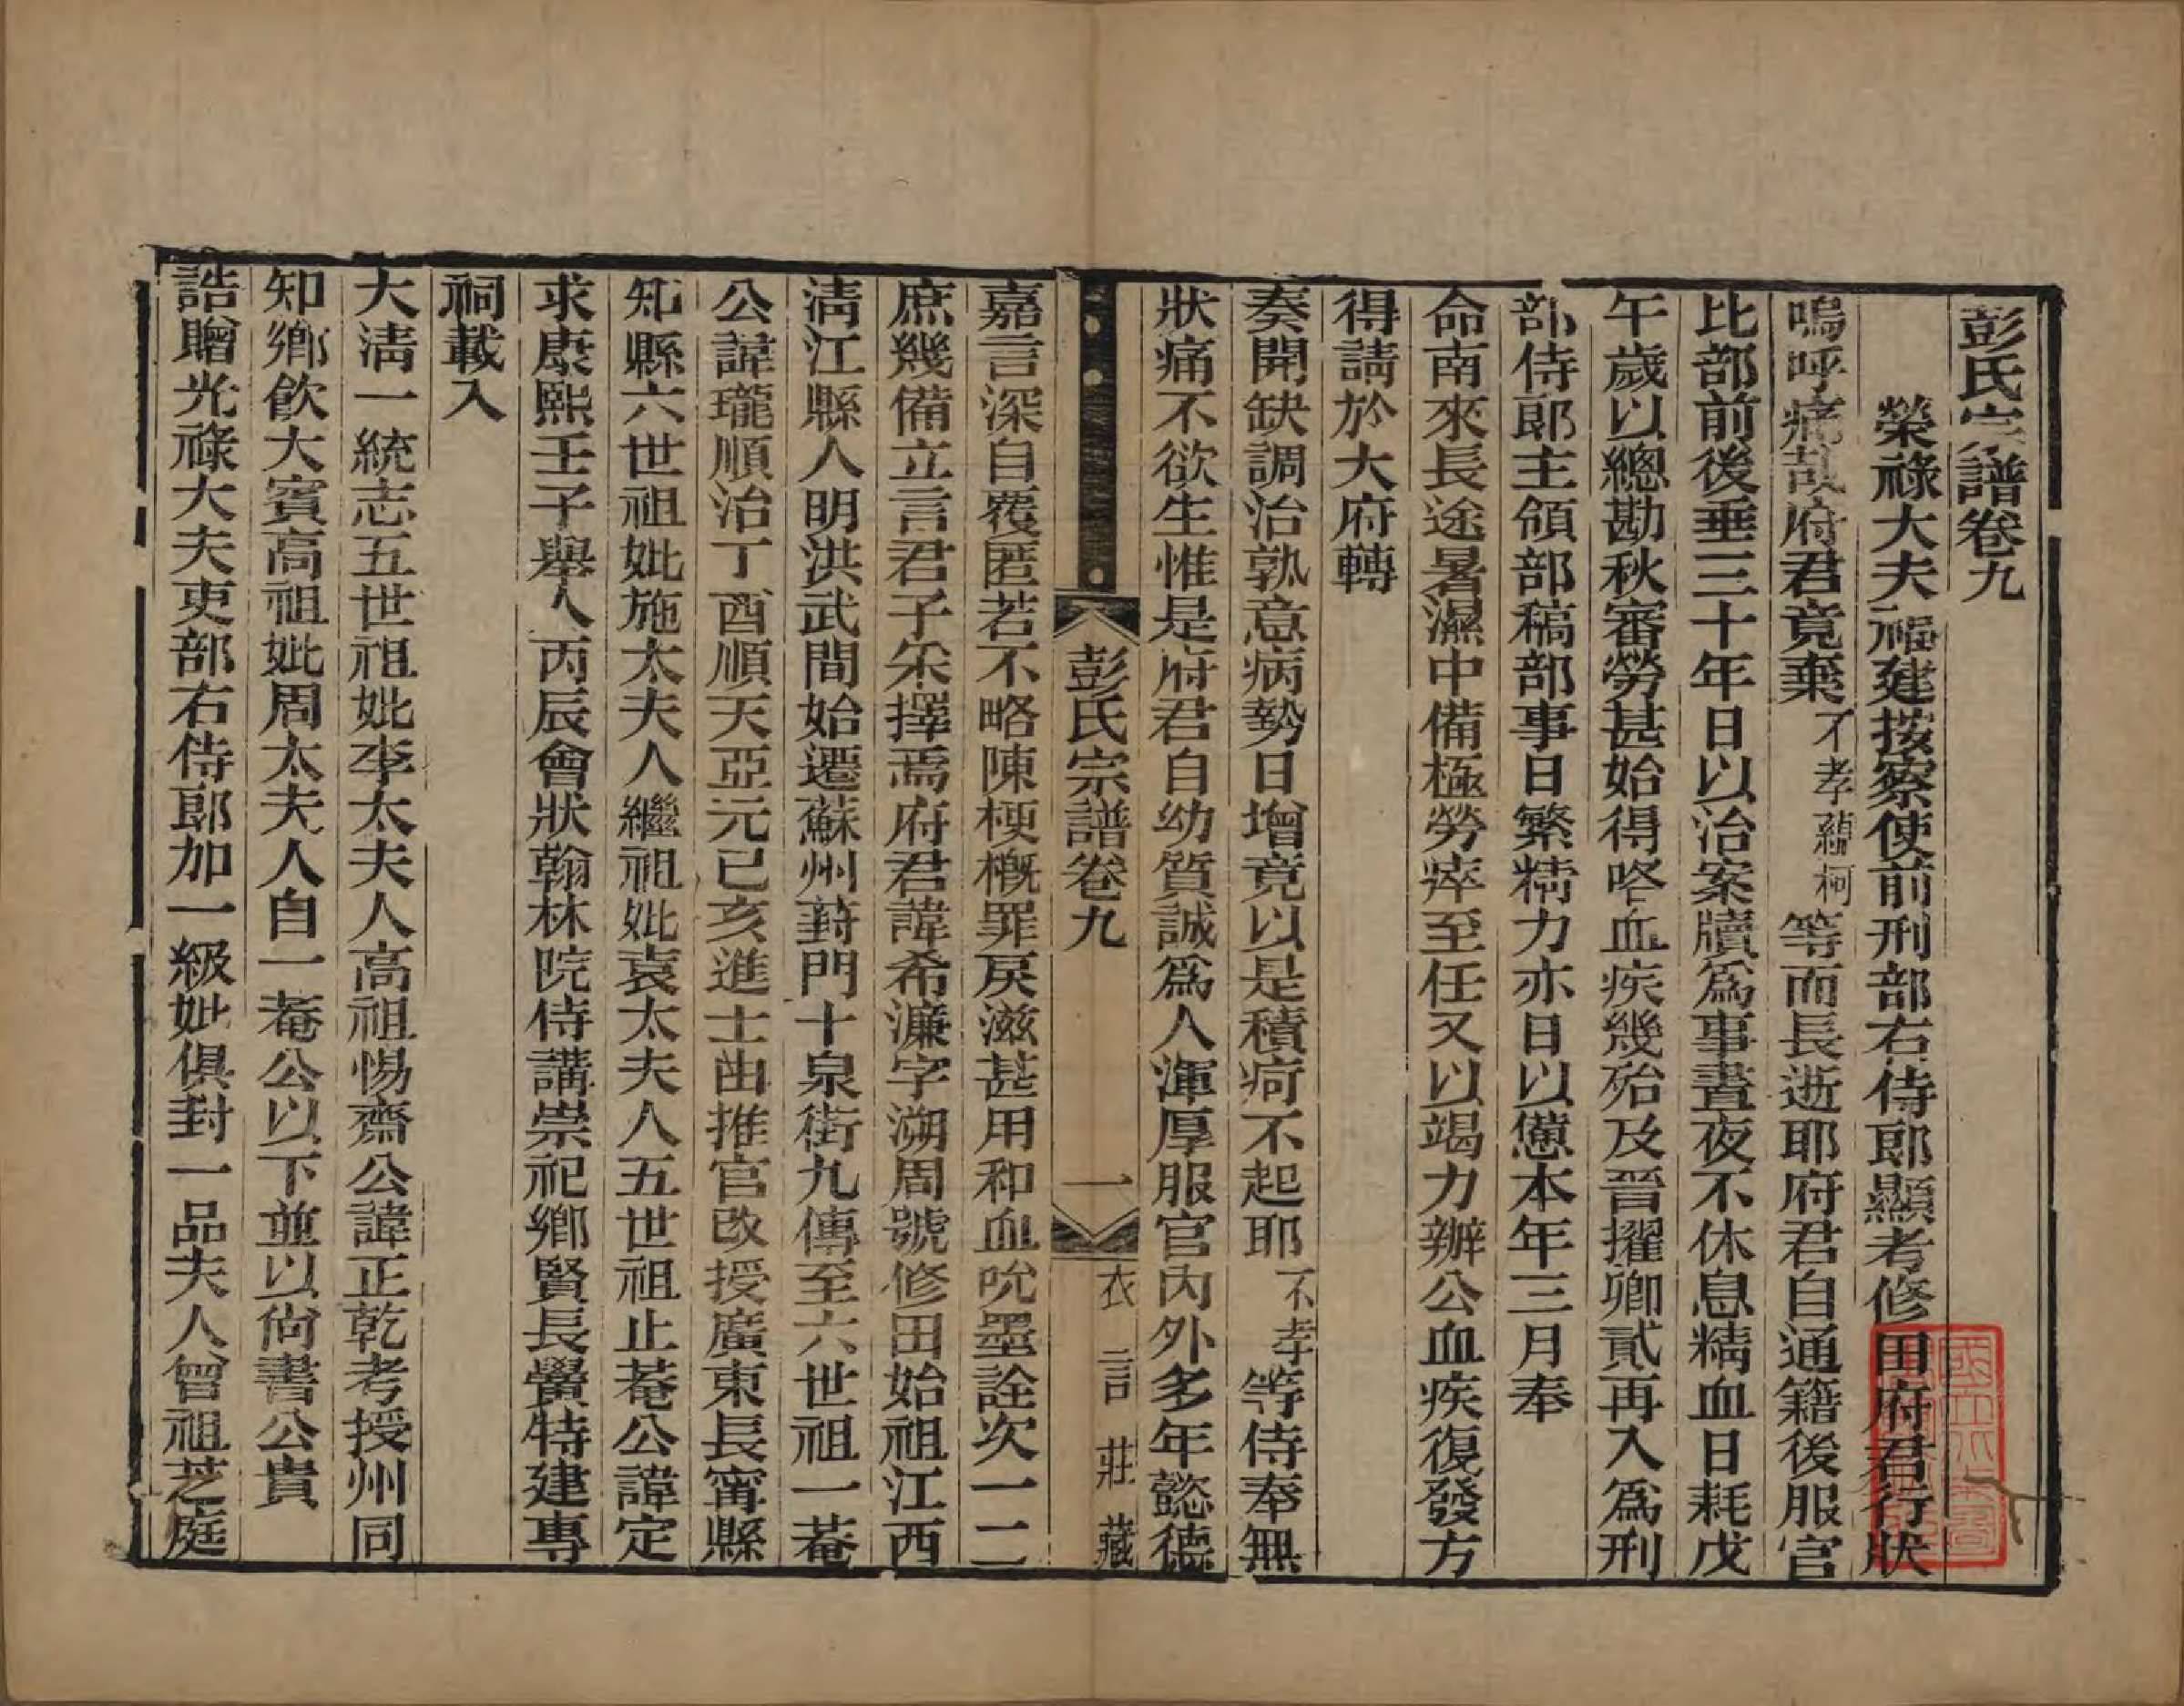 彭氏宗譜卷九
榮祿大夫福建按察使前刑部右侍郎顯考修田府君行狀
嗚呼痛哉府君竟棄不孝蘊柯等而長逝耶府君自通籍後服官
比部前後垂三十年日以治案牘爲事晝夜不休息精血日耗戊
午歲以總勘秋審勞甚始得咯血疾幾殆及晉擢卿貳再入爲刑
部侍郎主領部稿部事日繁精力亦日以憊本年三月奉
命南來長途暑濕中備極勞瘁至任又以竭力辦公血疾復發方
得請於大府轉
奏開缺調治孰意病勢日增竟以是積疴不起耶不孝等侍奉無
狀痛不欲生惟是府君自幼質誠爲人渾厚服官內外多年懿德
彭氏宗譜卷九
一
衣言莊藏
嘉言深自覆匿若不略陳梗概罪戾滋甚用和血吮墨詮次一二
庶幾備立言君子采擇焉府君諱希濂字溯周號修田始祖江西
淸江縣人明洪武間始遷蘇州葑門十泉街九傳至六世祖一菴
公諱瓏順治丁酉順天亞元己亥進士由推官改授廣東長甯縣
知縣六世祖妣施太夫人繼祖妣袁太夫人五世祖止菴公諱定
求康熙壬子舉人丙辰會狀翰林院侍講崇祀鄉賢長黌特建專
祠載入
大淸一統志五世祖妣李太夫人高祖惕齋公諱正乾考授州同
知鄉飮大賓高祖妣周太夫人自一菴公以下並以尙書公貴
誥贈光祿大夫吏部右侍郎加一級妣俱封一品夫人曾祖芝庭